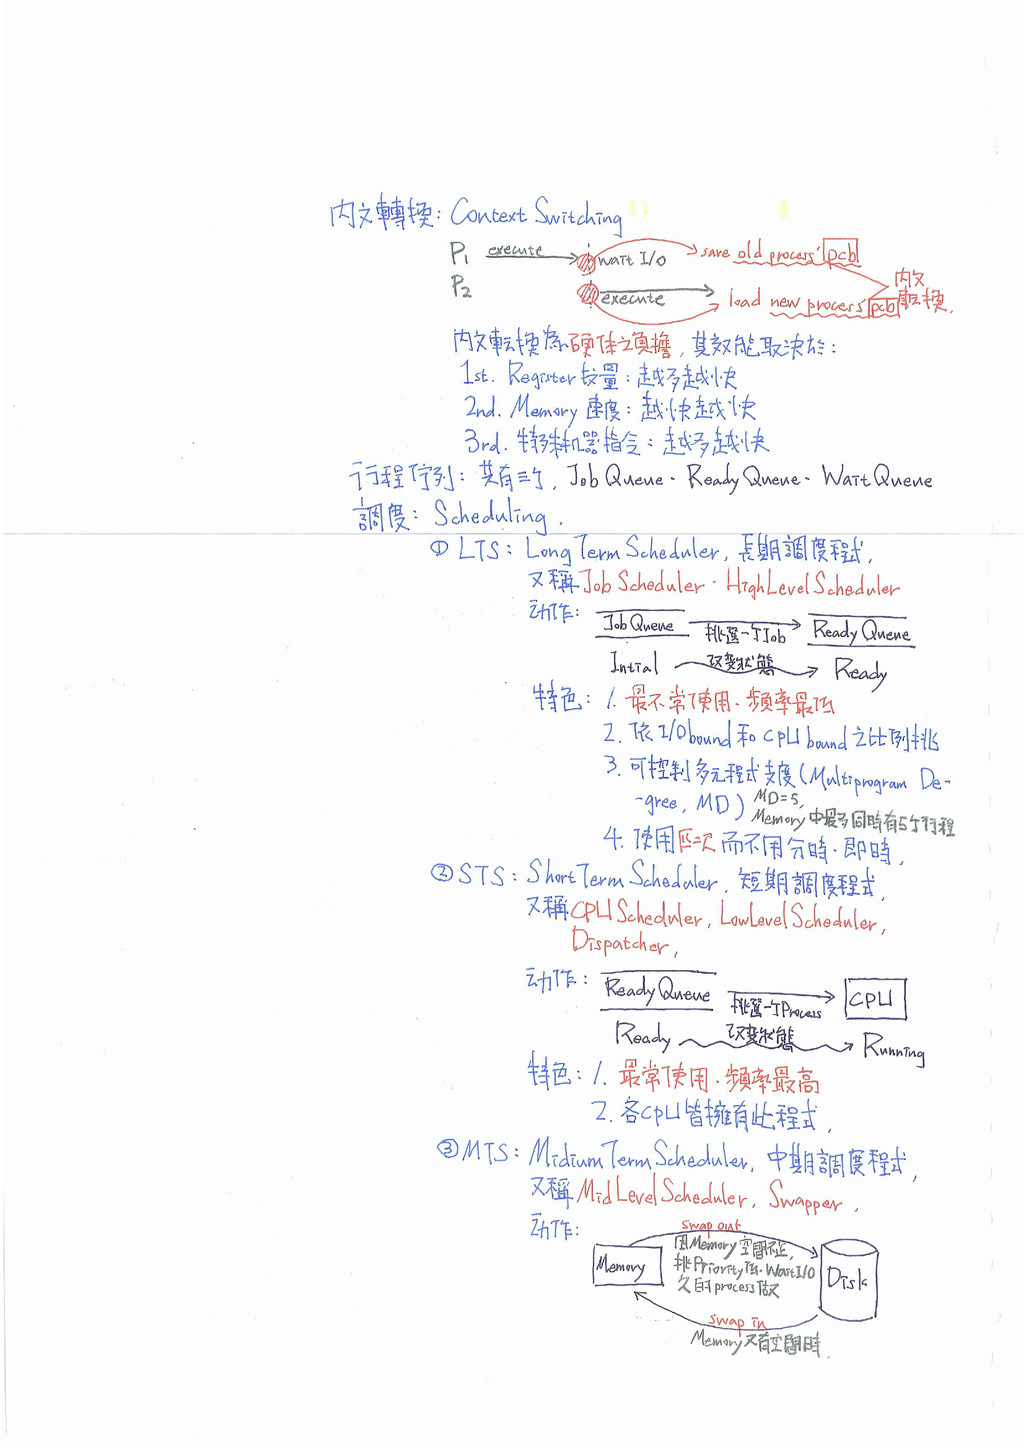 內文轉換: Context Switching
P1 execute wait I/O save old process' pcb
P2 execute load new process' pcb
內文
転換.
內文転換為硬体之負擔, 其效能取決於:
1st. Register 数量: 越多越快
2nd. Memory 速度: 越快越快
3rd. 特殊机器指令: 越多越快
行程佇列: 共有三个, Job Queue、Ready Queue、Wait Queue
調度: Scheduling.
① LTS: Long Term Scheduler, 長期調度程式,
又稱 Job Scheduler、High Level Scheduler
动作: Job Queue 挑選一个Job Ready Queue
Intial 改变狀態 Ready
特色: 1. 最不常使用、頻率最低
2. 依 I/O bound 和 CPU bound 之比例挑
3. 可控制多元程式支度(Multiprogram De-
-gree, MD) MD=5,
Memory 中最多同時有5个行程
4. 使用匹次而不用分時、即時,
② STS: Short Term Scheduler, 短期調度程式,
又稱 CPU Scheduler, Low Level Scheduler,
Dispatcher,
动作: Ready Queue 挑選一个Process CPU
Ready 改变狀態 Running
特色: 1. 最常使用、頻率最高
2. 各CPU皆擁有此程式,
③ MTS: Midium Term Scheduler, 中期調度程式,
又稱 Mid Level Scheduler, Swapper,
动作:
swap out
因Memory空間不足,
挑Priority低、Wait I/O
久的process做
Memory Disk
swap in
Memory又有空間時.